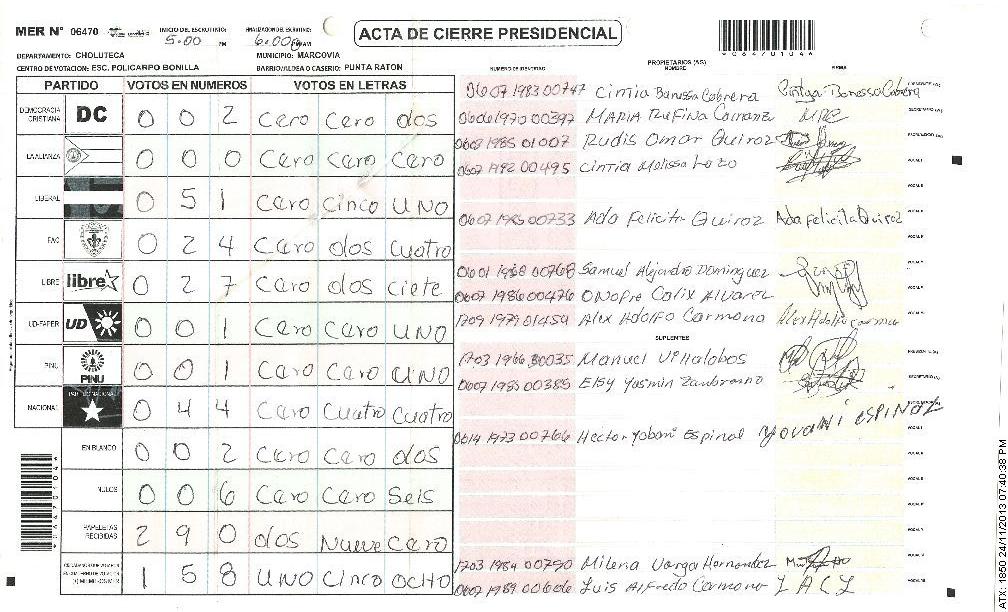 MER N° 06470
INICIO DEL ESCRUTINIO: 5:00 PM
FINALIZACION DEL ESCRUTINIO: 6:00
ACTA DE CIERRE PRESIDENCIAL
DEPARTAMENTO: CHOLUTECA
MUNICIPIO: MARCOVIA
CENTRO DE VOTACION: ESC. POLICARPO BONILLA
BARRIO/ALDEA O CASERIO: PUNTA RATON
PARTIDO VOTOS EN NUMEROS VOTOS EN LETRAS
DEMOCRACIA CRISTIANA DC 0 0 2 Cero Cero dos
LA ALIANZA 0 0 0 Cero Cero Cero
LIBERAL 0 5 1 Cero Cinco UNO
PAC 0 2 4 Cero dos Cuatro
LIBRE libre 0 2 7 Cero dos Ciete
UD-FAPER UD 0 0 1 Cero Cero UNO
PINU PINU 0 0 1 Cero Cero UNO
NACIONAL PARTIDO NACIONAL 0 4 4 Cero Cuatro Cuatro
EN BLANCO 0 0 2 Cero Cero dos
NULOS 0 0 6 Cero Cero Seis
PAPELETAS RECIBIDAS 2 9 0 dos Nueve Cero
1 5 8 UNO Cinco OCHO
NUMERO DE IDENTIDAD PROPIETARIOS (AS) NOMBRE FIRMA
0607 1983 00747 Cintia Banessa Cabrera
0606 1970 00397 MARIA RUFINA
0607 1985 01007 Rudis Omar Quiroz
0607 1992 00495 Cintia Melissa
0607 1985 00733 Ada Felicita Quiroz Ada felicita Quiroz
0601 1968 00768 Samuel Alejandro Dominguez
0607 1986 00476 ONOFre Calix Alvarez
1709 1979 01454 Alex Adolfo Carmona
SUPLENTES
1703 1966 00035 Manuel Villalobos
0607 1985 00385 Elsy Yasmin Zambrano
0614 1973 00766 Hector Yobani Espinal Yovani ESPINAL
1703 1984 00790 Milena Varga Hernandez
0607 1989 00606 Luis Alfredo Carmona L A C L
9064701046
ATX: 1650 24/11/2013 07:40:38 PM